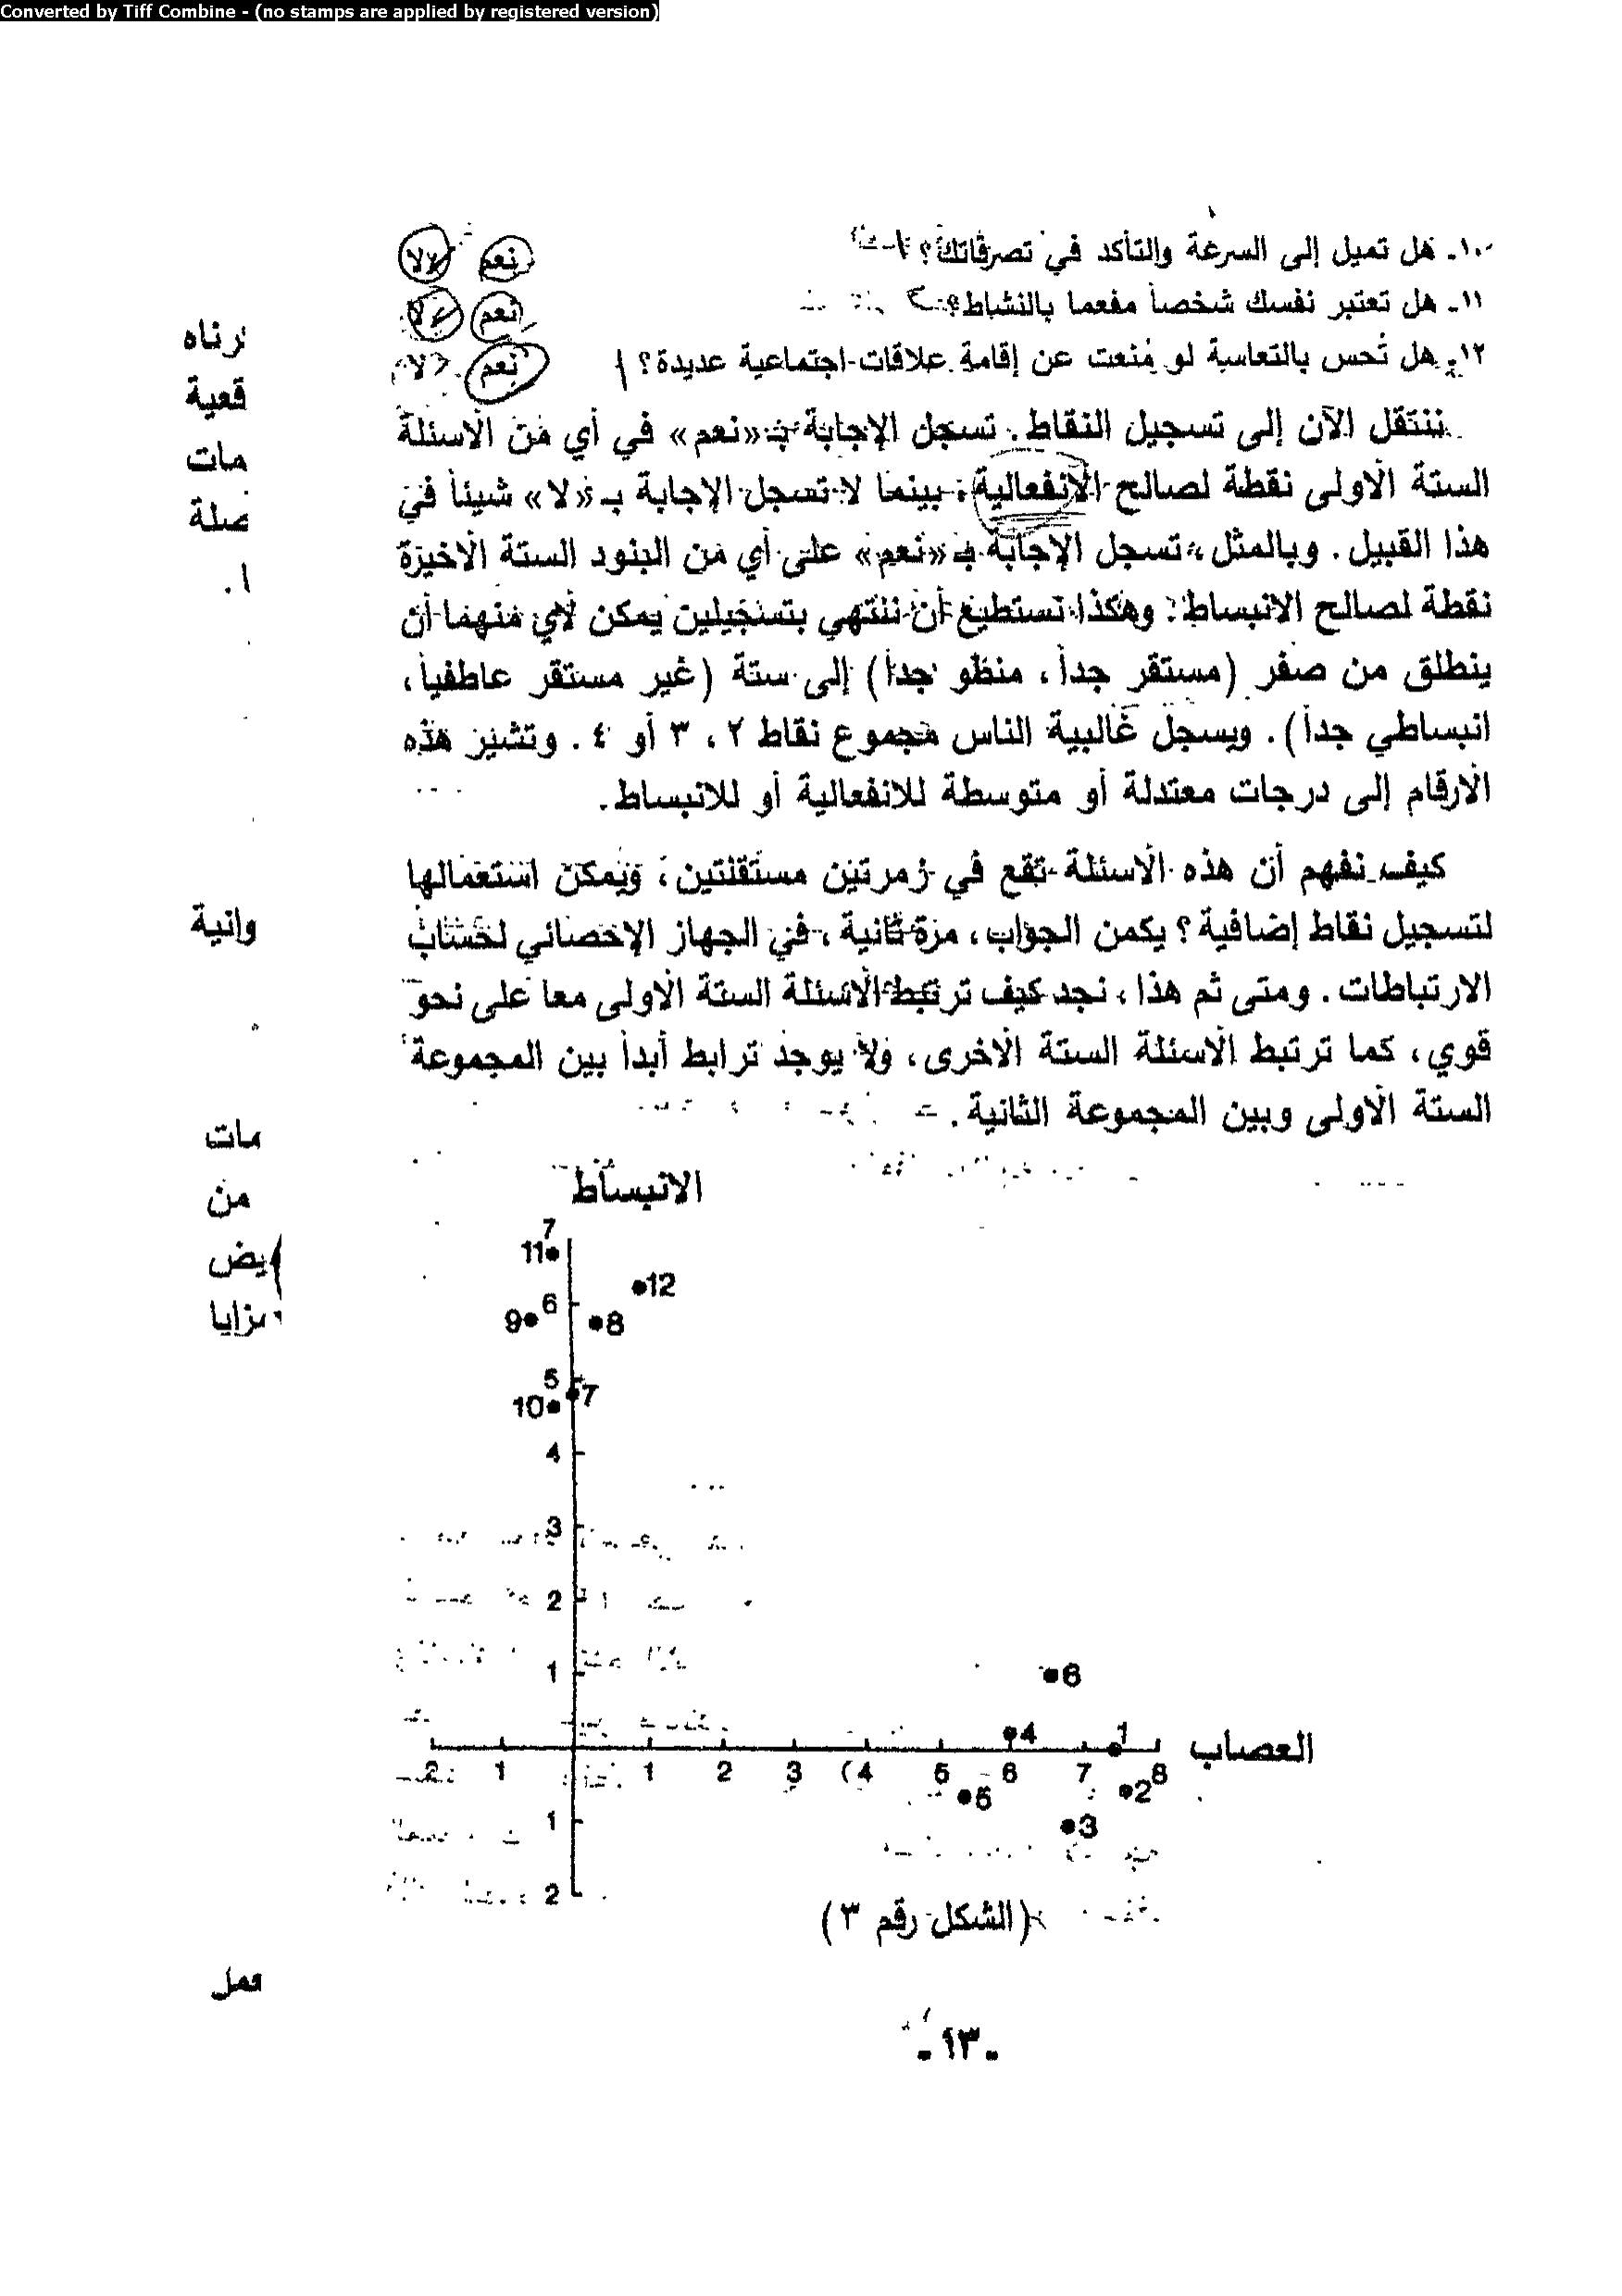 Converted by Tiff Combine - (no stamps are applied by registered version)
١٠ـ هل تميل إلى السرعة والتأكد في تصرفاتك؟ نعم لا
١١ـ هل تعتبر نفسك شخصاً مفعما بالنشاط؟ نعم لا
١٢ـ هل تُحس بالتعاسة لو مُنعت عن إقامة علاقات اجتماعية عديدة؟ نعم لا
ننتقل الآن إلى تسجيل النقاط. تسجل الإجابة بـ «نعم» في أي من الأسئلة
الستة الأولى نقطة لصالح الانفعالية، بينما لا تسجل الإجابة بـ «لا» شيئاً في
هذا القبيل. وبالمثل، تسجل الإجابة بـ «نعم» على أي من البنود الستة الأخيرة
نقطة لصالح الانبساط. وهكذا نستطيع أن ننتهي بتسجيلين يمكن لأي منهما أن
ينطلق من صفر (مستقر جداً، منطو جداً) إلى ستة (غير مستقر عاطفياً،
انبساطي جداً). ويسجل غالبية الناس مجموع نقاط ٢، ٣ أو ٤. وتشير هذه
الأرقام إلى درجات معتدلة أو متوسطة للانفعالية أو للانبساط.
كيف نفهم أن هذه الأسئلة تقع في زمرتين مستقلتين، ويمكن استعمالها
لتسجيل نقاط إضافية؟ يكمن الجواب، مرة ثانية، في الجهاز الإحصائي لحساب
الارتباطات. ومتى تم هذا، نجد كيف ترتبط الأسئلة الستة الأولى معا على نحو
قوي، كما ترتبط الأسئلة الستة الأخرى، ولا يوجد ترابط أبداً بين المجموعة
الستة الأولى وبين المجموعة الثانية.
الانبساط
7
11
12
6
9 8
5
10 7
4
3
2
1
6
4 1
العصاب
2 1 1 2 3 4 5 6 7 8
5 2
1 3
2
(الشكل رقم ٣)
ـ ١٣ ـ
رناه
قعية
مات
صلة
ا.
وانية
مات
من
يض
مزايا